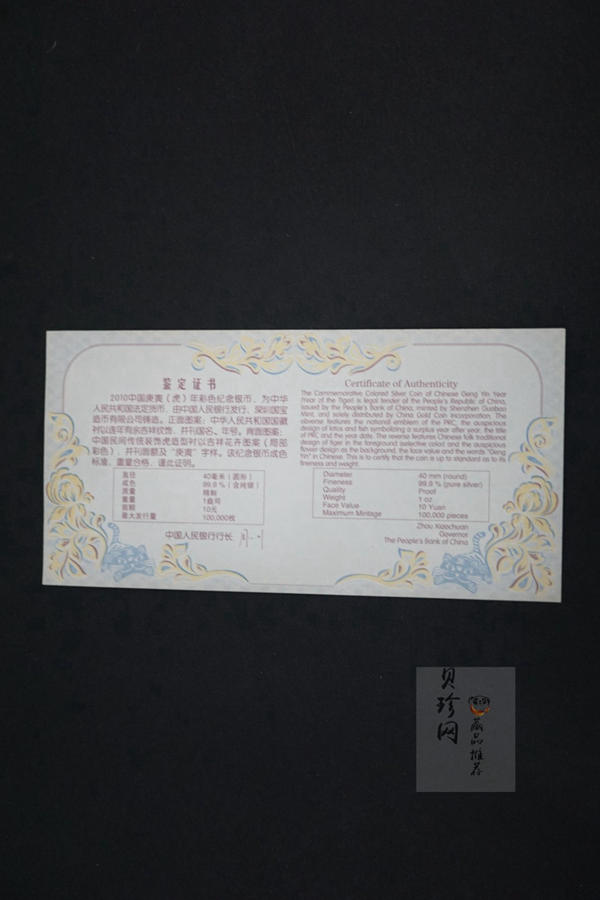 鉴定证书
2010中国庚寅（虎）年彩色纪念银币，为中华
人民共和国法定货币，由中国人民银行发行，深圳国宝
造币有限公司铸造。正面图案：中华人民共和国国徽
衬以连年有余吉祥纹饰，并刊国名、年号。背面图案：
中国民间传统装饰虎造型衬以吉祥花卉图案（局部
彩色），并刊面额及“庚寅”字样。该纪念银币成色
标准，重量合格，谨此证明。
直径 40毫米（圆形）
成色 99.9％（含纯银）
质量 精制
重量 1盎司
面额 10元
最大发行量 100,000枚
中国人民银行行长
Certificate of Authenticity
The Commemorative Colored Silver Coin of Chinese Geng Yin Year
(Year of the Tiger) is legal tender of the People's Republic of China,
issued by the People's Bank of China, minted by Shenzhen Guobao
Mint, and solely distributed by China Gold Coin Incorporation. The
obverse features the national emblem of the PRC, the auspicious
design of lotus and fish symbolizing a surplus year after year, the title
of PRC and the year date. The reverse features Chinese folk traditional
design of tiger in the foreground (selective color) and the auspicious
flower design as the background, the face value and the words "Geng
Yin" in Chinese. This is to certify that the coin is up to standard as to its
fineness and weight.
Diameter 40 mm (round)
Fineness 99.9 % (pure silver)
Quality Proof
Weight 1 oz
Face Value 10 Yuan
Maximum Mintage 100,000 pieces
Zhou Xiaochuan
Governor
The People's Bank of China
贝珍网
藏品推荐